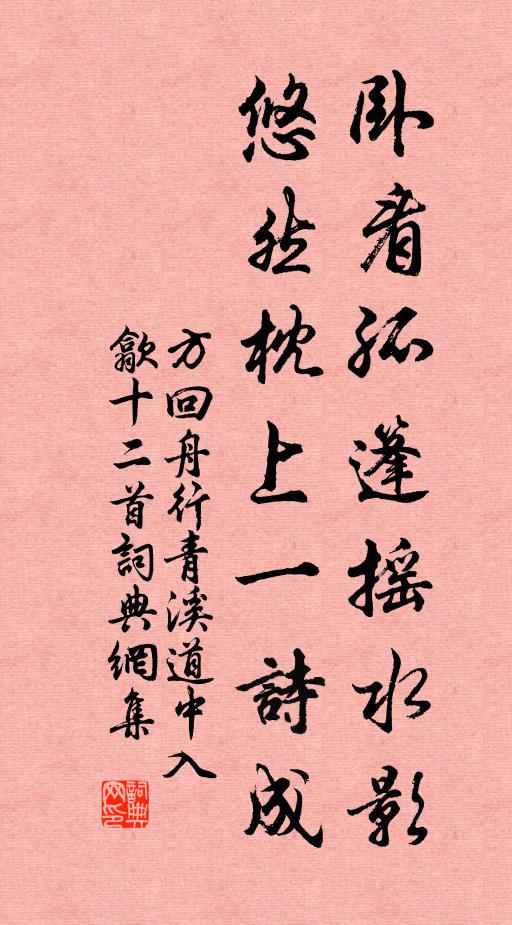 卧看孤篷摇水影
悠然枕上一詩成
方回舟行青溪道中入
歙十二首詞典網集
詞典
网印